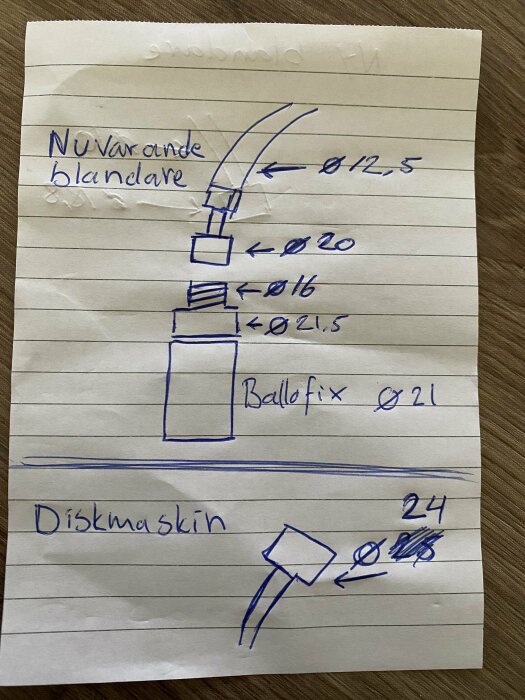 Nuvarande
blandare
← ø 12,5
← ø 20
← ø 16
← ø 21,5
Ballofix ø 21
Diskmaskin
24
ø